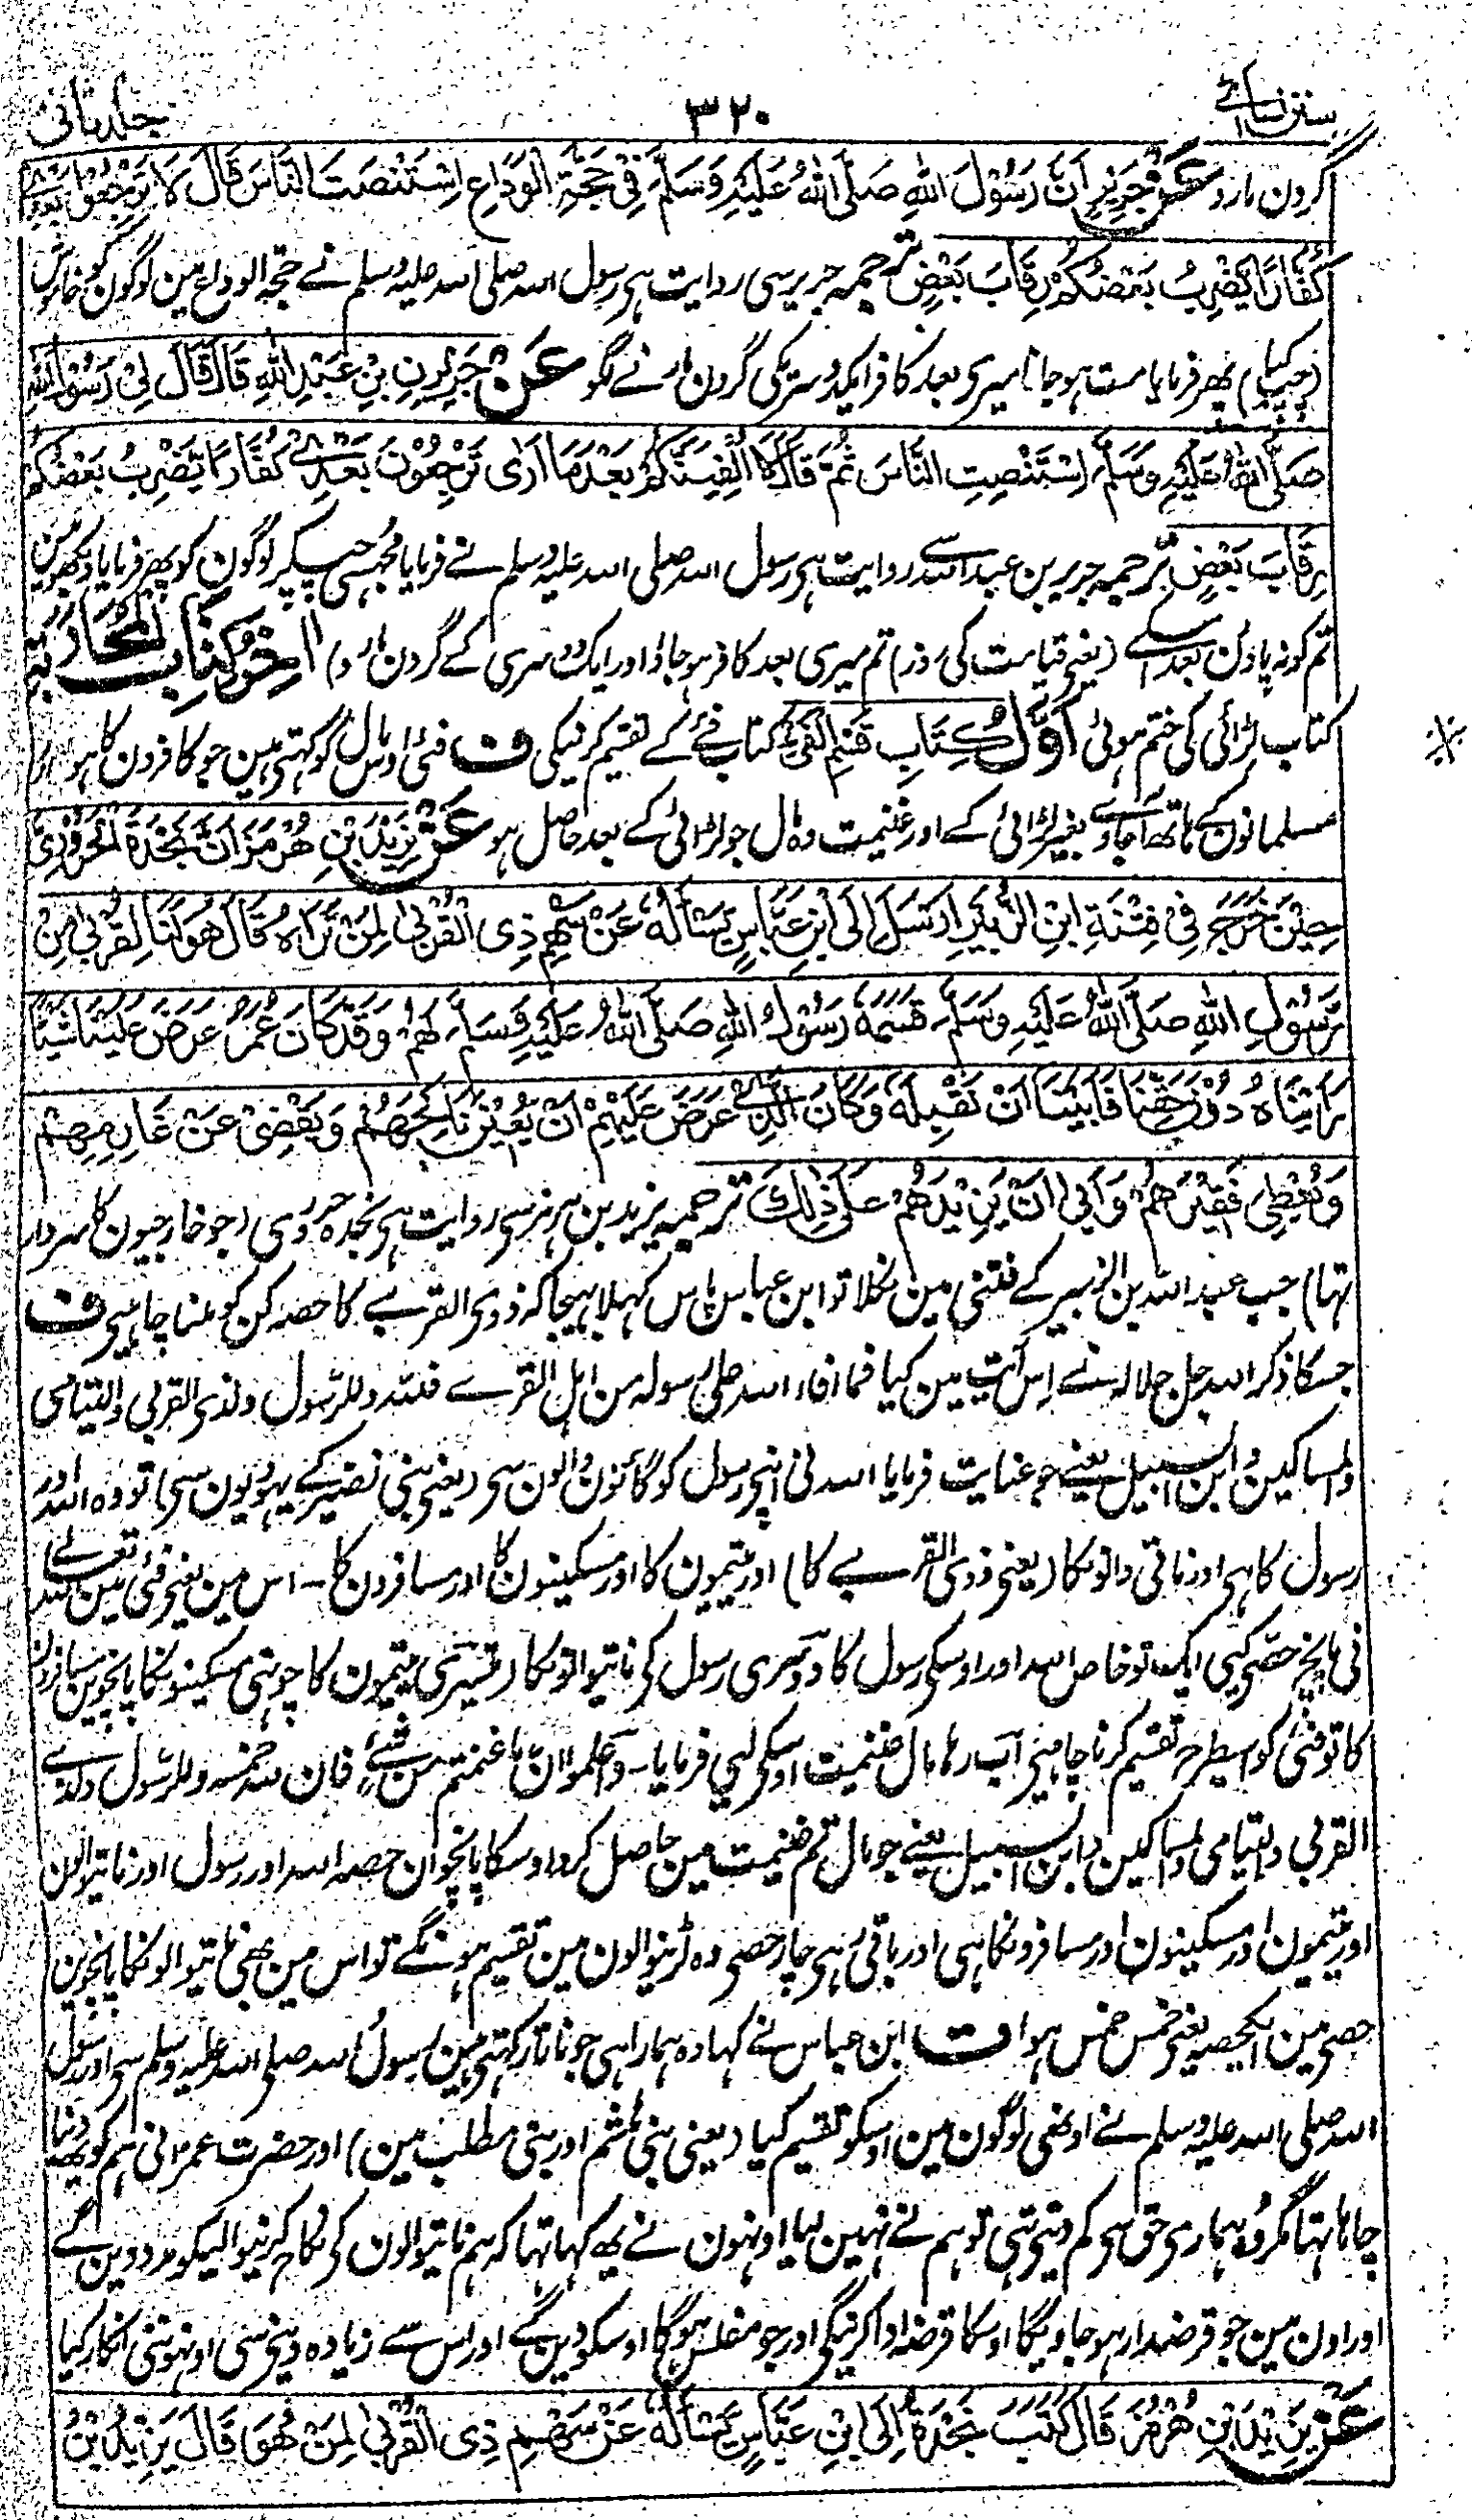 سنن نسائی ۳۲۰ جلد ثانی
گردن مارو عَنْ جَرِيْرٍ اَنَّ رَسُوْلَ اللهِ صَلَّى اللهُ عَلَيْهِ وَسَلَّمَ فِيْ حَجَّةِ الْوَدَاعِ اِسْتَنْصَتَ النَّاسَ قَالَ لَا تَرْجِعُوْا بَعْدِيْ
كُفَّارًا يَضْرِبُ بَعْضُكُمْ رِقَابَ بَعْضٍ ترجمہ جریر سی روایت ہی رسول اللہ صلی اللہ علیہ وسلم نے حجۃ الوداع مین لوگون کو خاموش
(چپ کیا) پھر فرمایا مت ہوجانا میری بعد کافر ایک دوسریکی گردن مارنے لگو عَنْ جَرِيْرِ بْنِ عَبْدِ اللهِ قَالَ قَالَ لِيْ رَسُوْلُ اللهِ
صَلَّى اللهُ عَلَيْهِ وَسَلَّمَ اسْتَنْصِتِ النَّاسَ ثُمَّ قَالَ لَا اُلْفِيَنَّكُمْ بَعْدَ مَا اَرٰى تَرْجِعُوْنَ بَعْدِيْ كُفَّارًا يَضْرِبُ بَعْضُكُمْ
رِقَابَ بَعْضٍ ترجمہ جریر بن عبد اللہ سے روایت ہی رسول اللہ صلی اللہ علیہ وسلم نے فرمایا مجھسی چپ کر لوگون کو پھر فرمایا دیکھو مین
تم کو نہ پاؤن بعد اسکے (یعنی قیامت کی روز) تم میری بعد کافر ہوجاؤ اور ایک دوسری کے گردن مارو) اٰخِرُ كِتَابِ الْمُحَارَبَةِ
کتاب لڑائی کی ختم ہوئی اَوَّلُ كِتَابِ قَسْمِ الْفَيْءِ کتاب فئے کے تقسیم کرنیکی ف فئی اوس مال کو کہتی ہین جو کافرون کا ہو اور
مسلمانون کے ہاتھ آجاوے بغیر لڑائی کے اور غنیمت وہ مال جو لڑائی کے بعد حاصل ہو عَنْ يَزِيْدَ بْنِ هُرْمُزَ اَنَّ نَجْدَةَ الْحَرُوْرِيَّ
حِيْنَ خَرَجَ فِيْ فِتْنَةِ ابْنِ الزُّبَيْرِ اَرْسَلَ اِلَى ابْنِ عَبَّاسٍ يَسْاَلُهُ عَنْ سَهْمِ ذِي الْقُرْبٰى لِمَنْ تَرَاهُ قَالَ هُوَ لَنَا لِقُرْبٰى مِنْ
رَّسُوْلِ اللهِ صَلَّى اللهُ عَلَيْهِ وَسَلَّمَ قَسَمَهُ رَسُوْلُ اللهِ صَلَّى اللهُ عَلَيْهِ وَسَلَّمَ لَهُمْ وَقَدْ كَانَ عُمَرُ عَرَضَ عَلَيْنَا شَيْئًا
رَاَيْنَاهُ دُوْنَ حَقِّنَا فَاَبَيْنَا اَنْ نَقْبَلَهُ وَكَانَ الَّذِيْ عَرَضَ عَلَيْهِمْ اَنْ يُعِيْنَ نَاكِحَهُمْ وَيَقْضِيَ عَنْ غَارِمِهِمْ
وَيُعْطِيَ فَقِيْرَهُمْ وَاَبٰى اَنْ يَّزِيْدَهُمْ عَلٰى ذٰلِكَ ترجمہ یزید بن ہرمز سی روایت ہی نجدہ حروری (جو خارجیون کا سردار
تھا) جب عبد اللہ بن الزبیر کے فتنی مین نکلا تو ابن عباس پاس کہلا بھیجا کہ ذوی القربے کا حصہ کن کو ملنا چاہیی ف
جسکا ذکر اللہ جل جلالہ نے اس آیت مین کیا فما افاء اللہ علی رسولہ من اہل القرے فللہ وللرسول ولذی القربی والیتامی
والمساکین وابن السبیل یعنے جو عنایت فرمایا اللہ نی اپنی رسول کو گانوں والون سی (یعنی بنی نضیر کے یہودیون سی) تو وہ اللہ اور
رسول کا ہی اور ناتی والونکا (یعنی ذوی القربے کا) اور یتیمون کا اور مسکینون کا اور مسافرون کا۔ اس مین یعنی فئی مین اللہ تعالے
نی پانچ حصی کیی ایک تو خاص اللہ اور اوسکی رسول کا دوسری رسول کی ناتیوالونکا تیسری یتیمون کا چوتھی مسکینونکا پانچوین مسافرون
کا تو فئی کو اسیطرح تقسیم کرنا چاہیئی اب رہا مال غنیمت اوسکی لیی فرمایا۔ واعلموا انما غنمتم من شیء فان للہ خمسہ وللرسول ولذی
القربی والیتامی والمساکین وابن السبیل یعنے جو مال تم غنیمت مین حاصل کرو اوسکا پانچوان حصہ اللہ اور رسول اور ناتیوالون
اور یتیمون اور مسکینون اور مسافرونکا ہی اور باقی رہی چار حصی وہ لڑنیوالون مین تقسیم ہونگے تو اس مین بھی ناتیوالونکا پانچوین
حصی مین ایکحصہ یعنی خمس خمس ہوا ف ابن عباس نے کہا وہ ہمارا ہی جو ناتا رکھتی ہین رسول اللہ صلی اللہ علیہ وسلم سی اور رسول
اللہ صلی اللہ علیہ وسلم نے اونھی لوگون مین اوسکو تقسیم کیا (یعنی بنی ہاشم اور بنی مطلب مین) اور حضرت عمر نی ہم کو کچھ دینا
چاہا تھا مگر وہ ہماری حق سی کم دیتی تھی تو ہم نے نہین لیا اونہون نے یہ کہا تھا کہ ہم ناتیوالون کی نکاح کرنیوالیکو مدد دین گے
اور اون مین جو قرضدار ہوجاویگا اوسکا قرضہ ادا کرینگی اور جو مفلس ہوگا اوسکو دین گے اور اس سے زیادہ دینی سی اونہونی انکار کیا
عَنْ يَزِيْدَ بْنِ هُرْمُزَ قَالَ كَتَبَ نَجْدَةُ اِلَى ابْنِ عَبَّاسٍ يَسْاَلُهُ عَنْ سَهْمِ ذِي الْقُرْبٰى لِمَنْ هُوَ قَالَ يَزِيْدُ بْنُ